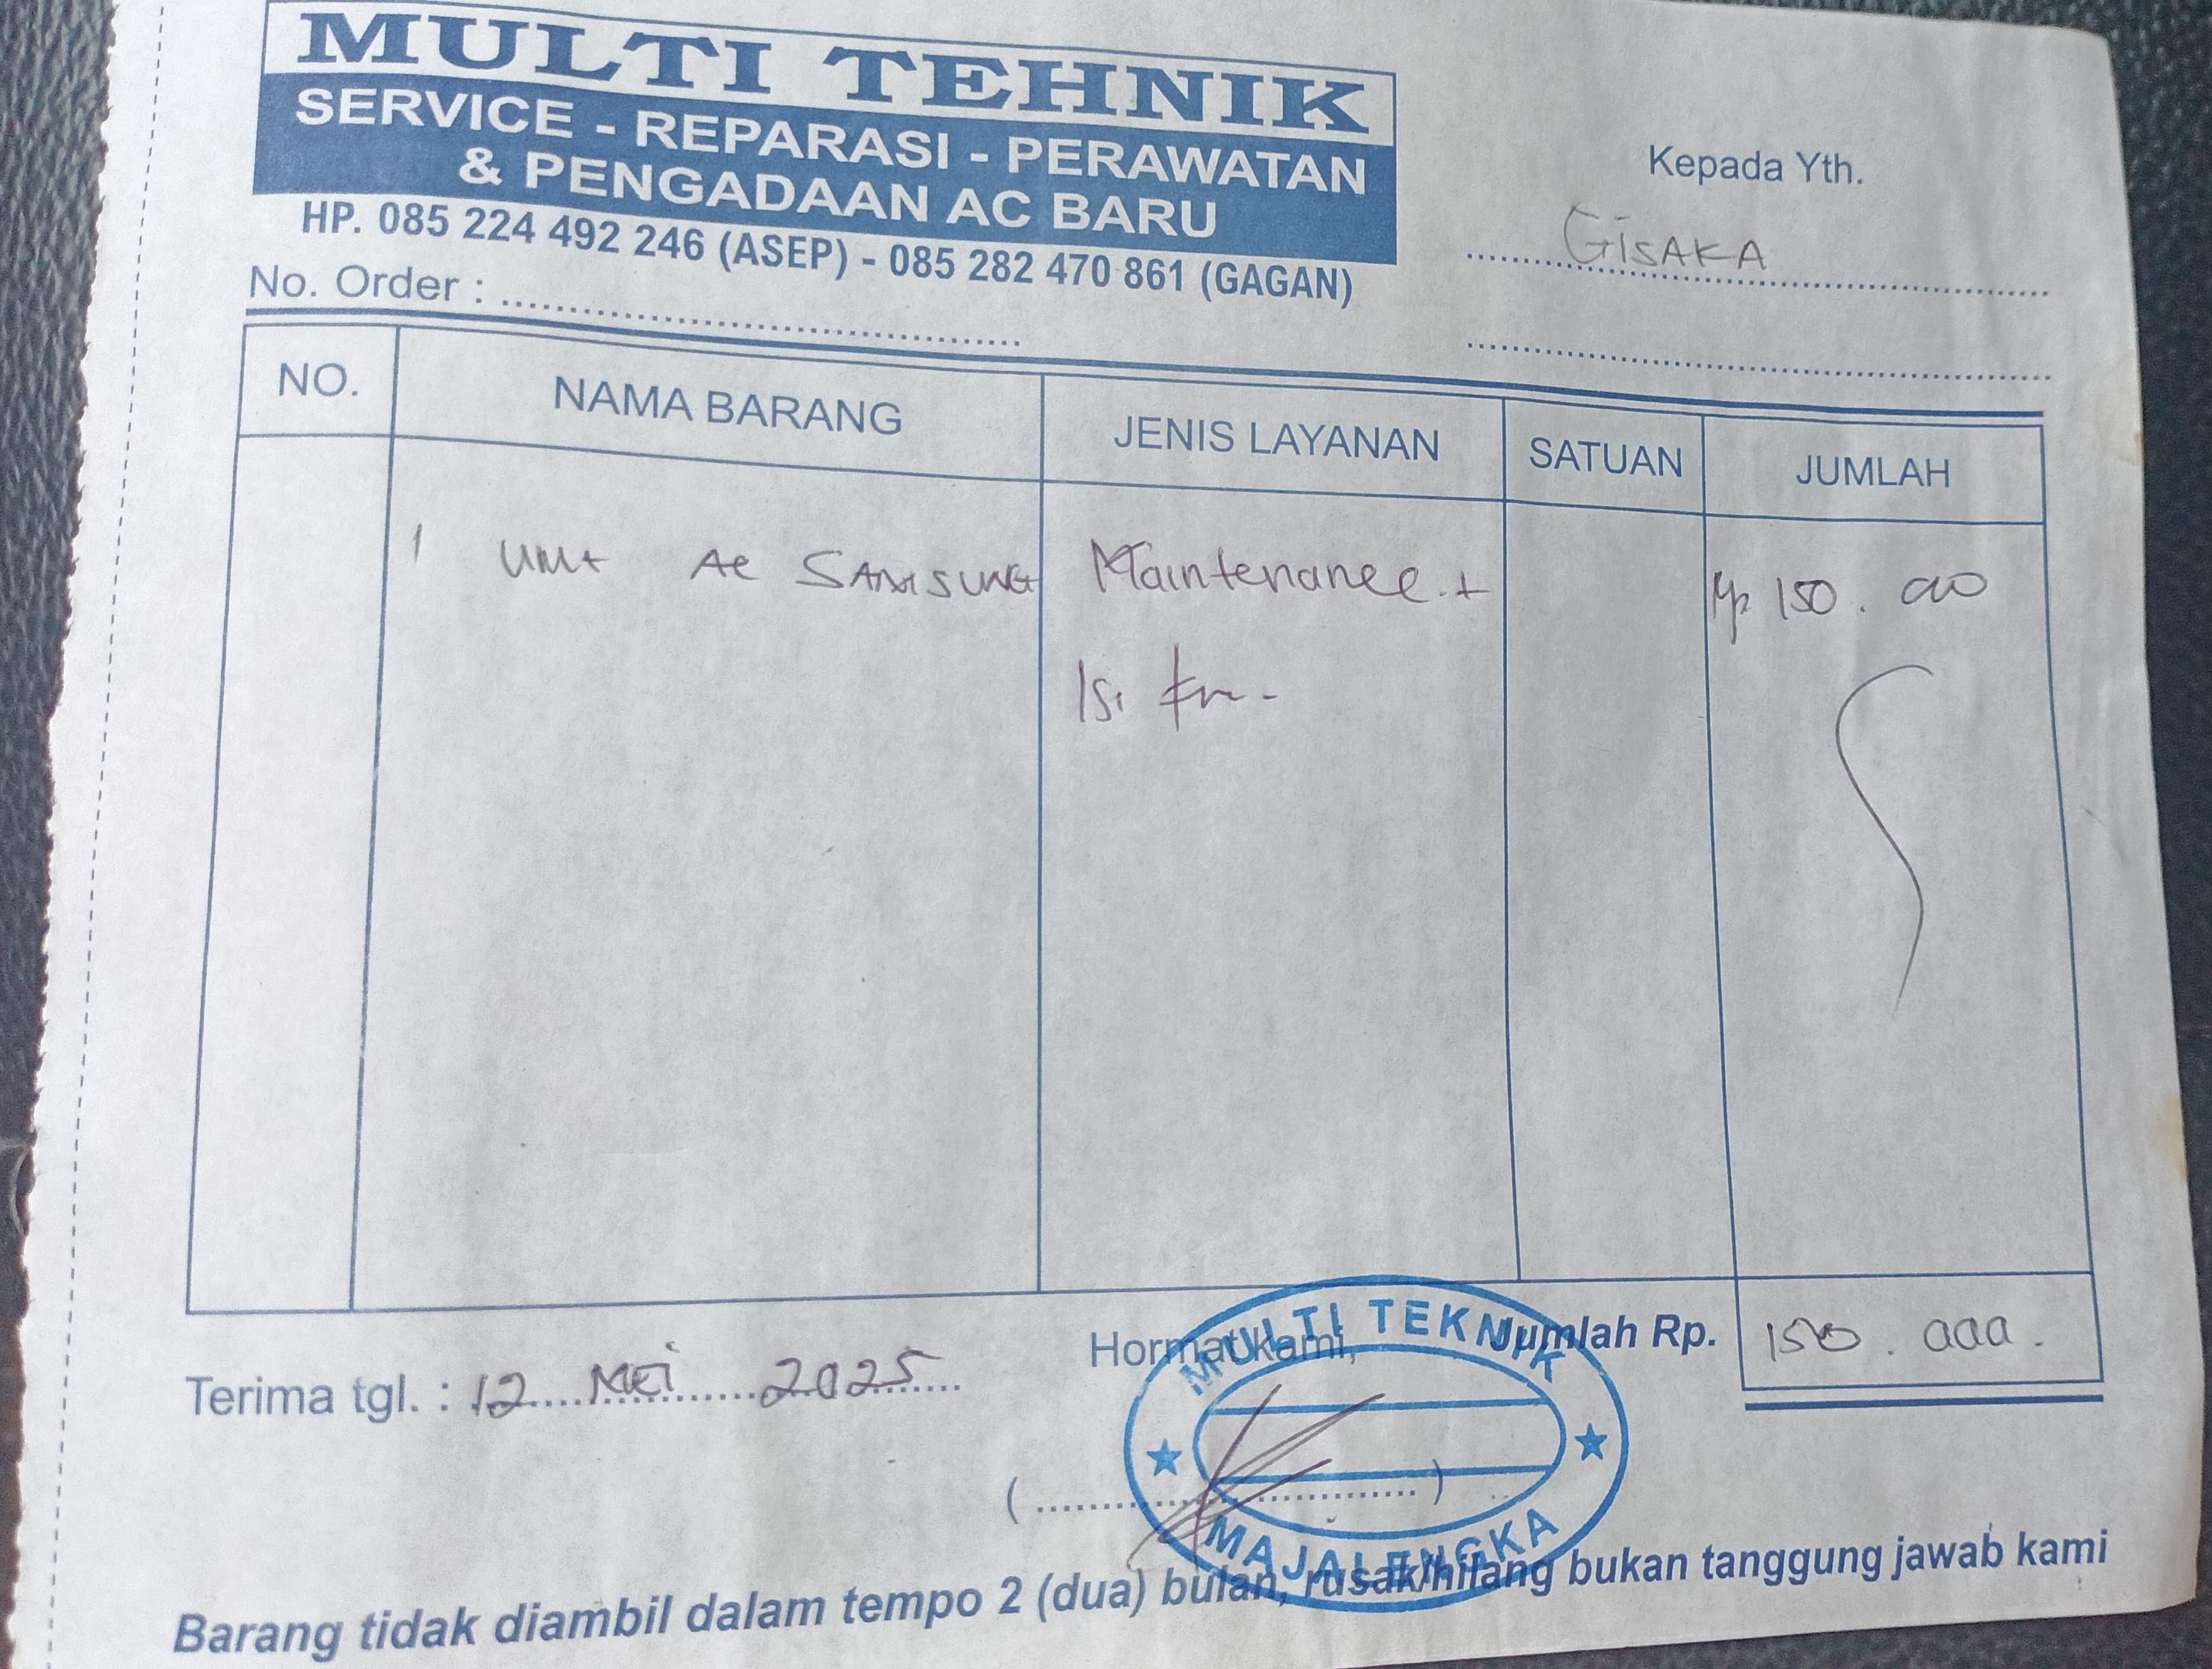 MULTI TEHNIK
SERVICE - REPARASI - PERAWATAN
& PENGADAAN AC BARU
HP. 085 224 492 246 (ASEP) - 085 282 470 861 (GAGAN)
Kepada Yth.
GiSAKA
No. Order :
NO. NAMA BARANG JENIS LAYANAN SATUAN JUMLAH
1 Unit AC SAMSUNG Maintenance + Rp 150.000
Isi
Jumlah Rp. 150.000.
Terima tgl. : 12 Mei 2025
Hormat kami,
MULTI TEKNIK
MAJALENGKA
Barang tidak diambil dalam tempo 2 (dua) bulan, rusak/hilang bukan tanggung jawab kami